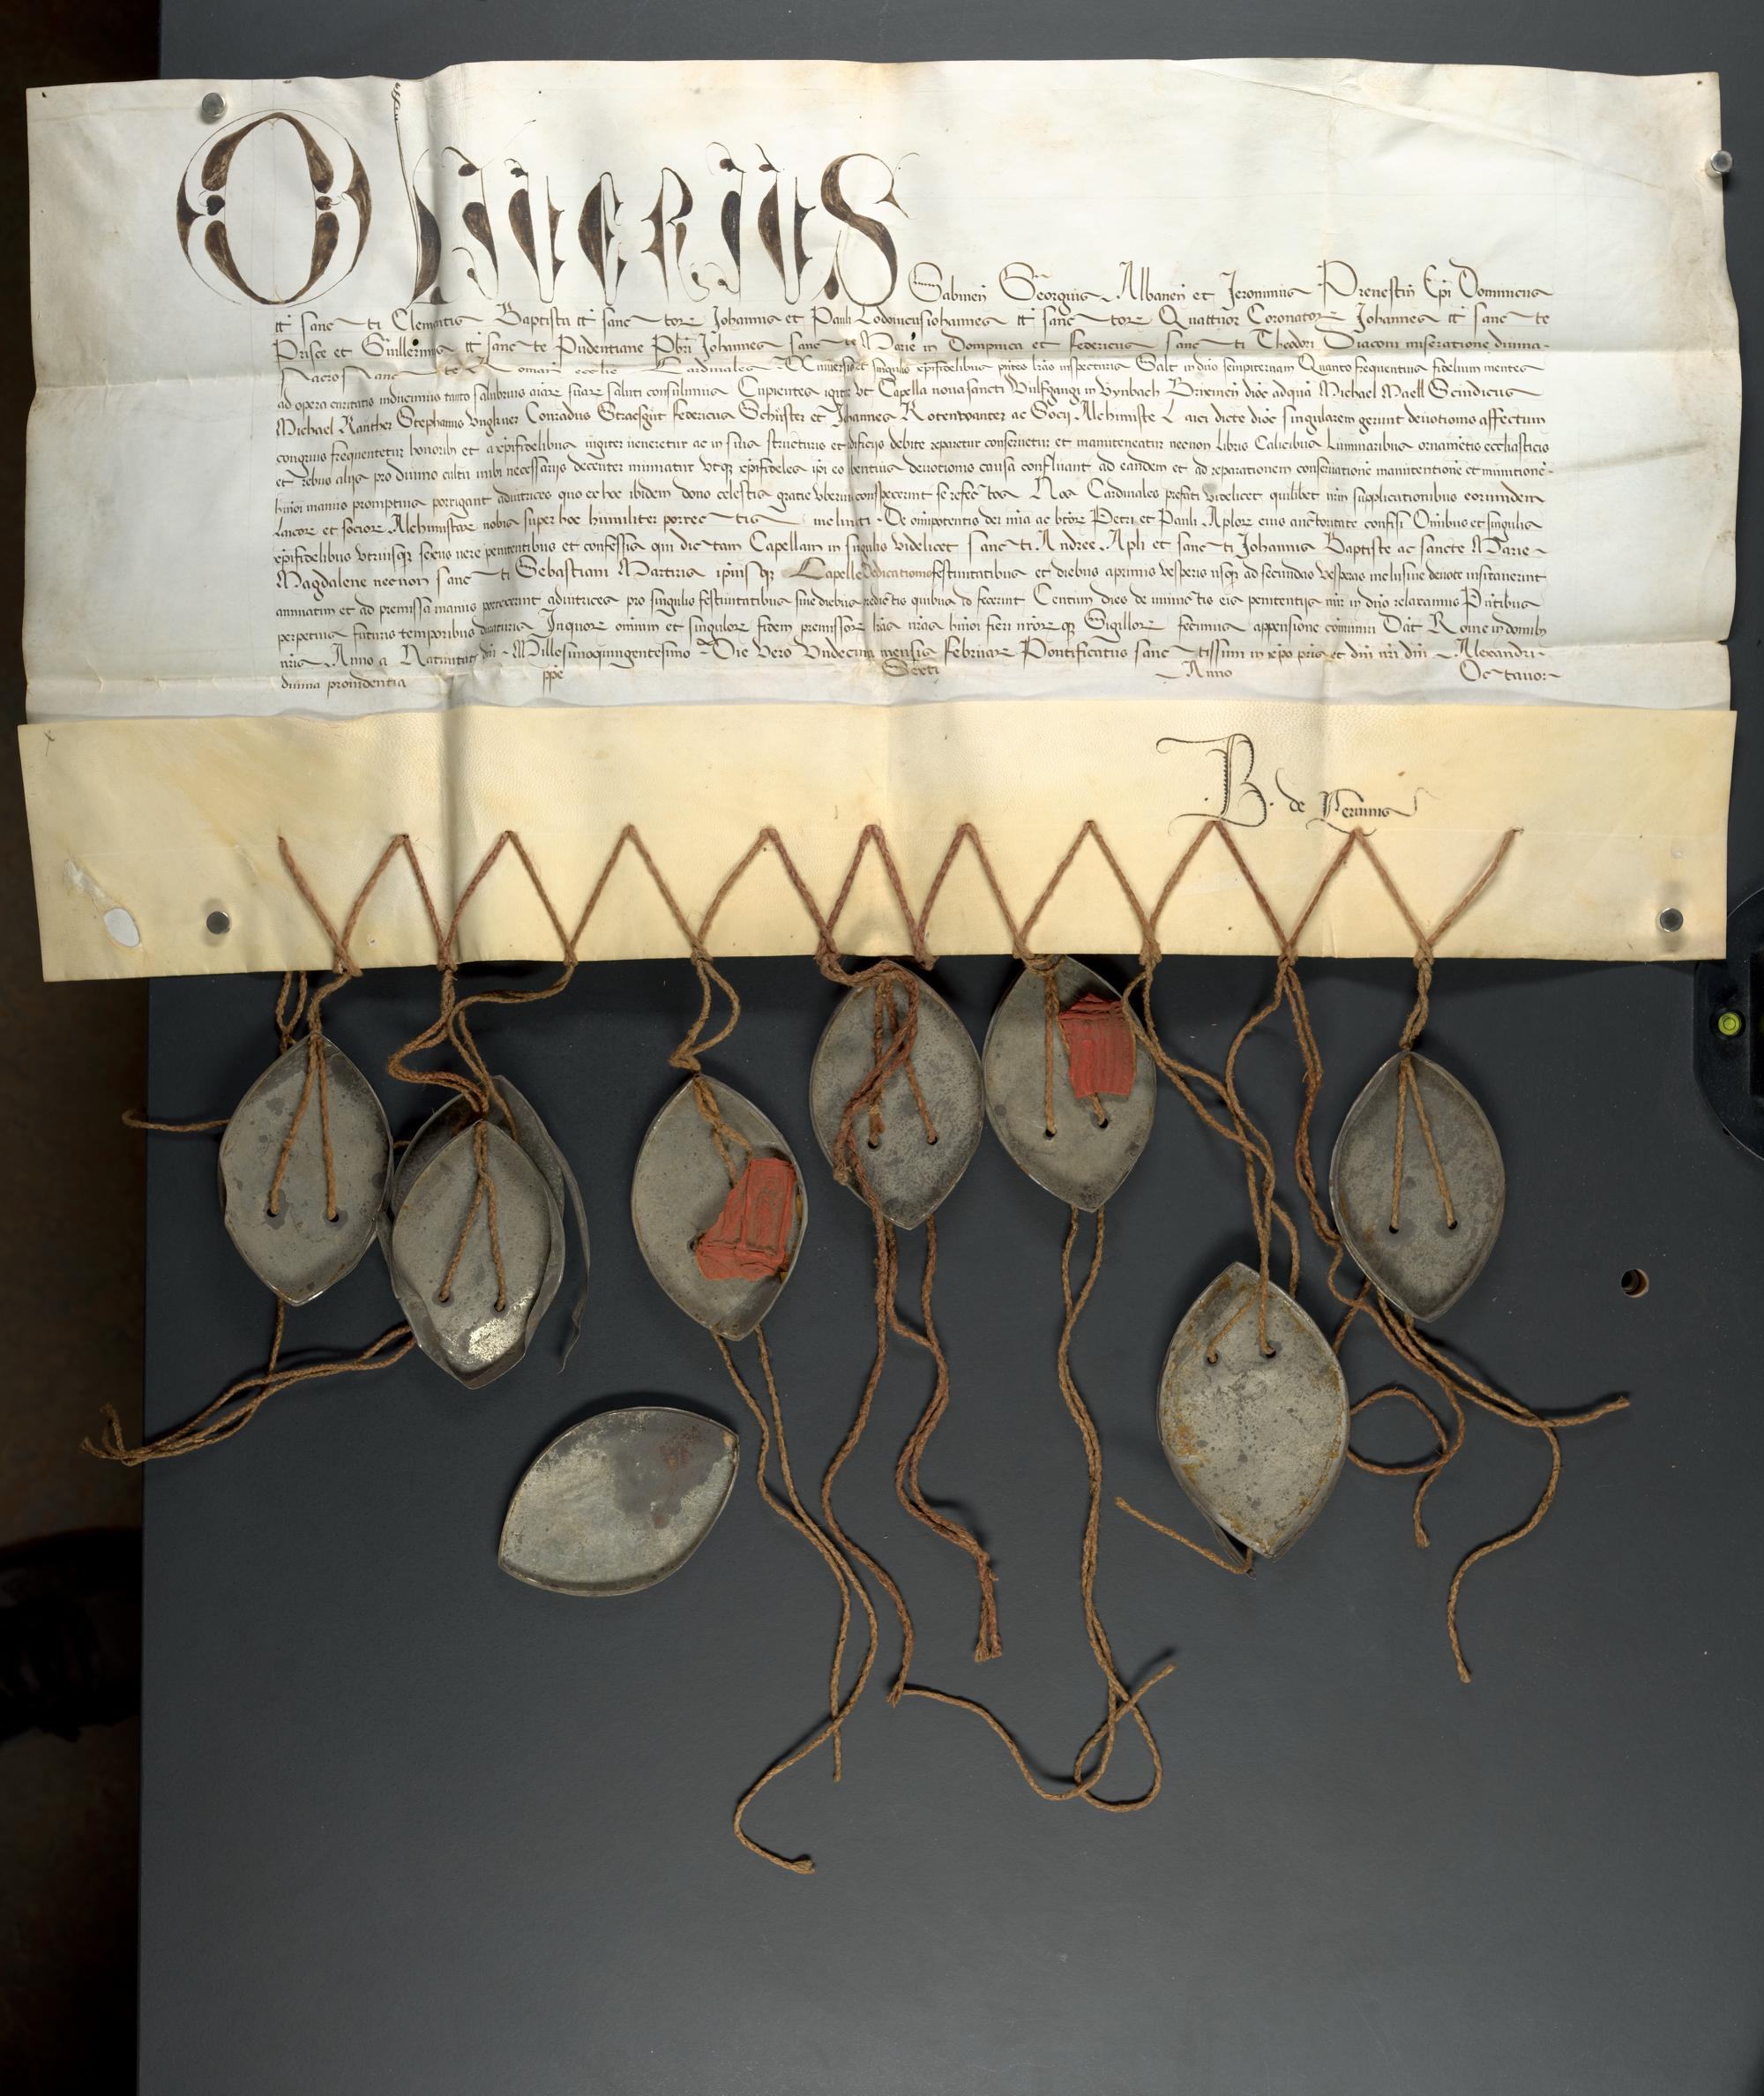 OLIVERIUS Sabinen Georgius Albanen et Jeronimus Prenestin Epi Dominicus
tt sancti Clementis Baptista tt sanctorꝝ Johannis et Pauli Lodovicus iohannes tt sanctorꝝ Quattuor Coronatorꝝ Johannes tt sancte
Prisce et Guillermus tt sancte Pudentiane Pbri Johannes sancte Marie in Dompnica et federicus sancti Theodori Diaconi miseratione divina
Sacrosancte Romane ecclie Cardinales Universis et singulis xpifidelibus pntes lras inspecturis Salt in dno sempiternam Quanto frequentius fidelium mentes
ad opera caritatis inducimus tanto salubrius aiarꝝ suarꝝ saluti consulimus Cupientes igitur ut Capella nova sancti Wlffgangi in Vynbach Brixinen dioc ad quam Michael Maell Scindicus
Michael Ranther Stephanus Vnglner Conradus Straesgut federicus Schuster et Johannes Rotenwanter ac Socij Alchimiste Laici dicte dioc singularem gerunt devotionis affectum
congruis frequentetur honorib et a xpifidelibus iugiter veneretur ac in suis structuris et edificijs debite reparetur conservetur et manuteneatur necnon libris Calicibus Luminaribus ornametis ecclasticis
et rebus alijs pro divino cultu inibi necessarijs decenter muniatur utqȝ xpifideles ipi eo libentius devotionis causa confluant ad eandem et ad reparationem conservatione manutentione et munitione
huiusmoi manus promptius porrigant adiutrices quo ex hoc ibidem dono celestis gratie uberius conspexerint se refectos Nos Cardinales prefati videlicet quilibet nrm supplicationibus eorumdem
Laicorꝝ et sociorꝝ Alchimistarꝝ nobis super hoc humiliter porrectis inclinati De omipotentis dei mia ac btorꝝ Petri et Pauli Aplorꝝ eius auctoritate confisi Omibus et singulis
xpifidelibus utriusqȝ sexus vere penitentibus et confessis qui dictam Capellam in singulis videlicet sancti Andree Apli et sancti Johannis Baptiste ac sancte Marie
Magdalene necnon sancti Sebastiani Martiris ipiusqȝ Capelle Dedicationis festivitatibus et diebus a primis vesperis usqȝ ad secundas vesperas inclusive devote visitaverint
annuatim et ad premissa manus porrexerint adiutrices pro singulis festivitatibus sive diebus predictis quibus id fecerint Centum dies de iniunctis eis penitentijs mir in dno relaxamus Pntibus
perpetuis futuris temporibus duraturis In quorꝝ omium et singulorꝝ fidem premissorꝝ lras nras huiusmoi fieri nrorꝝqȝ Sigillorꝝ fecimus appensione comuniri Dat Rome in domib
nris Anno a Nativitate dni Millesimoquingentesimo Die vero Vndecima mensis februarij Pontificatus sanctissimi in xpo pris et dni nri dni Alexandri
divina providentia ppe Sexti Anno Octavo
B. de